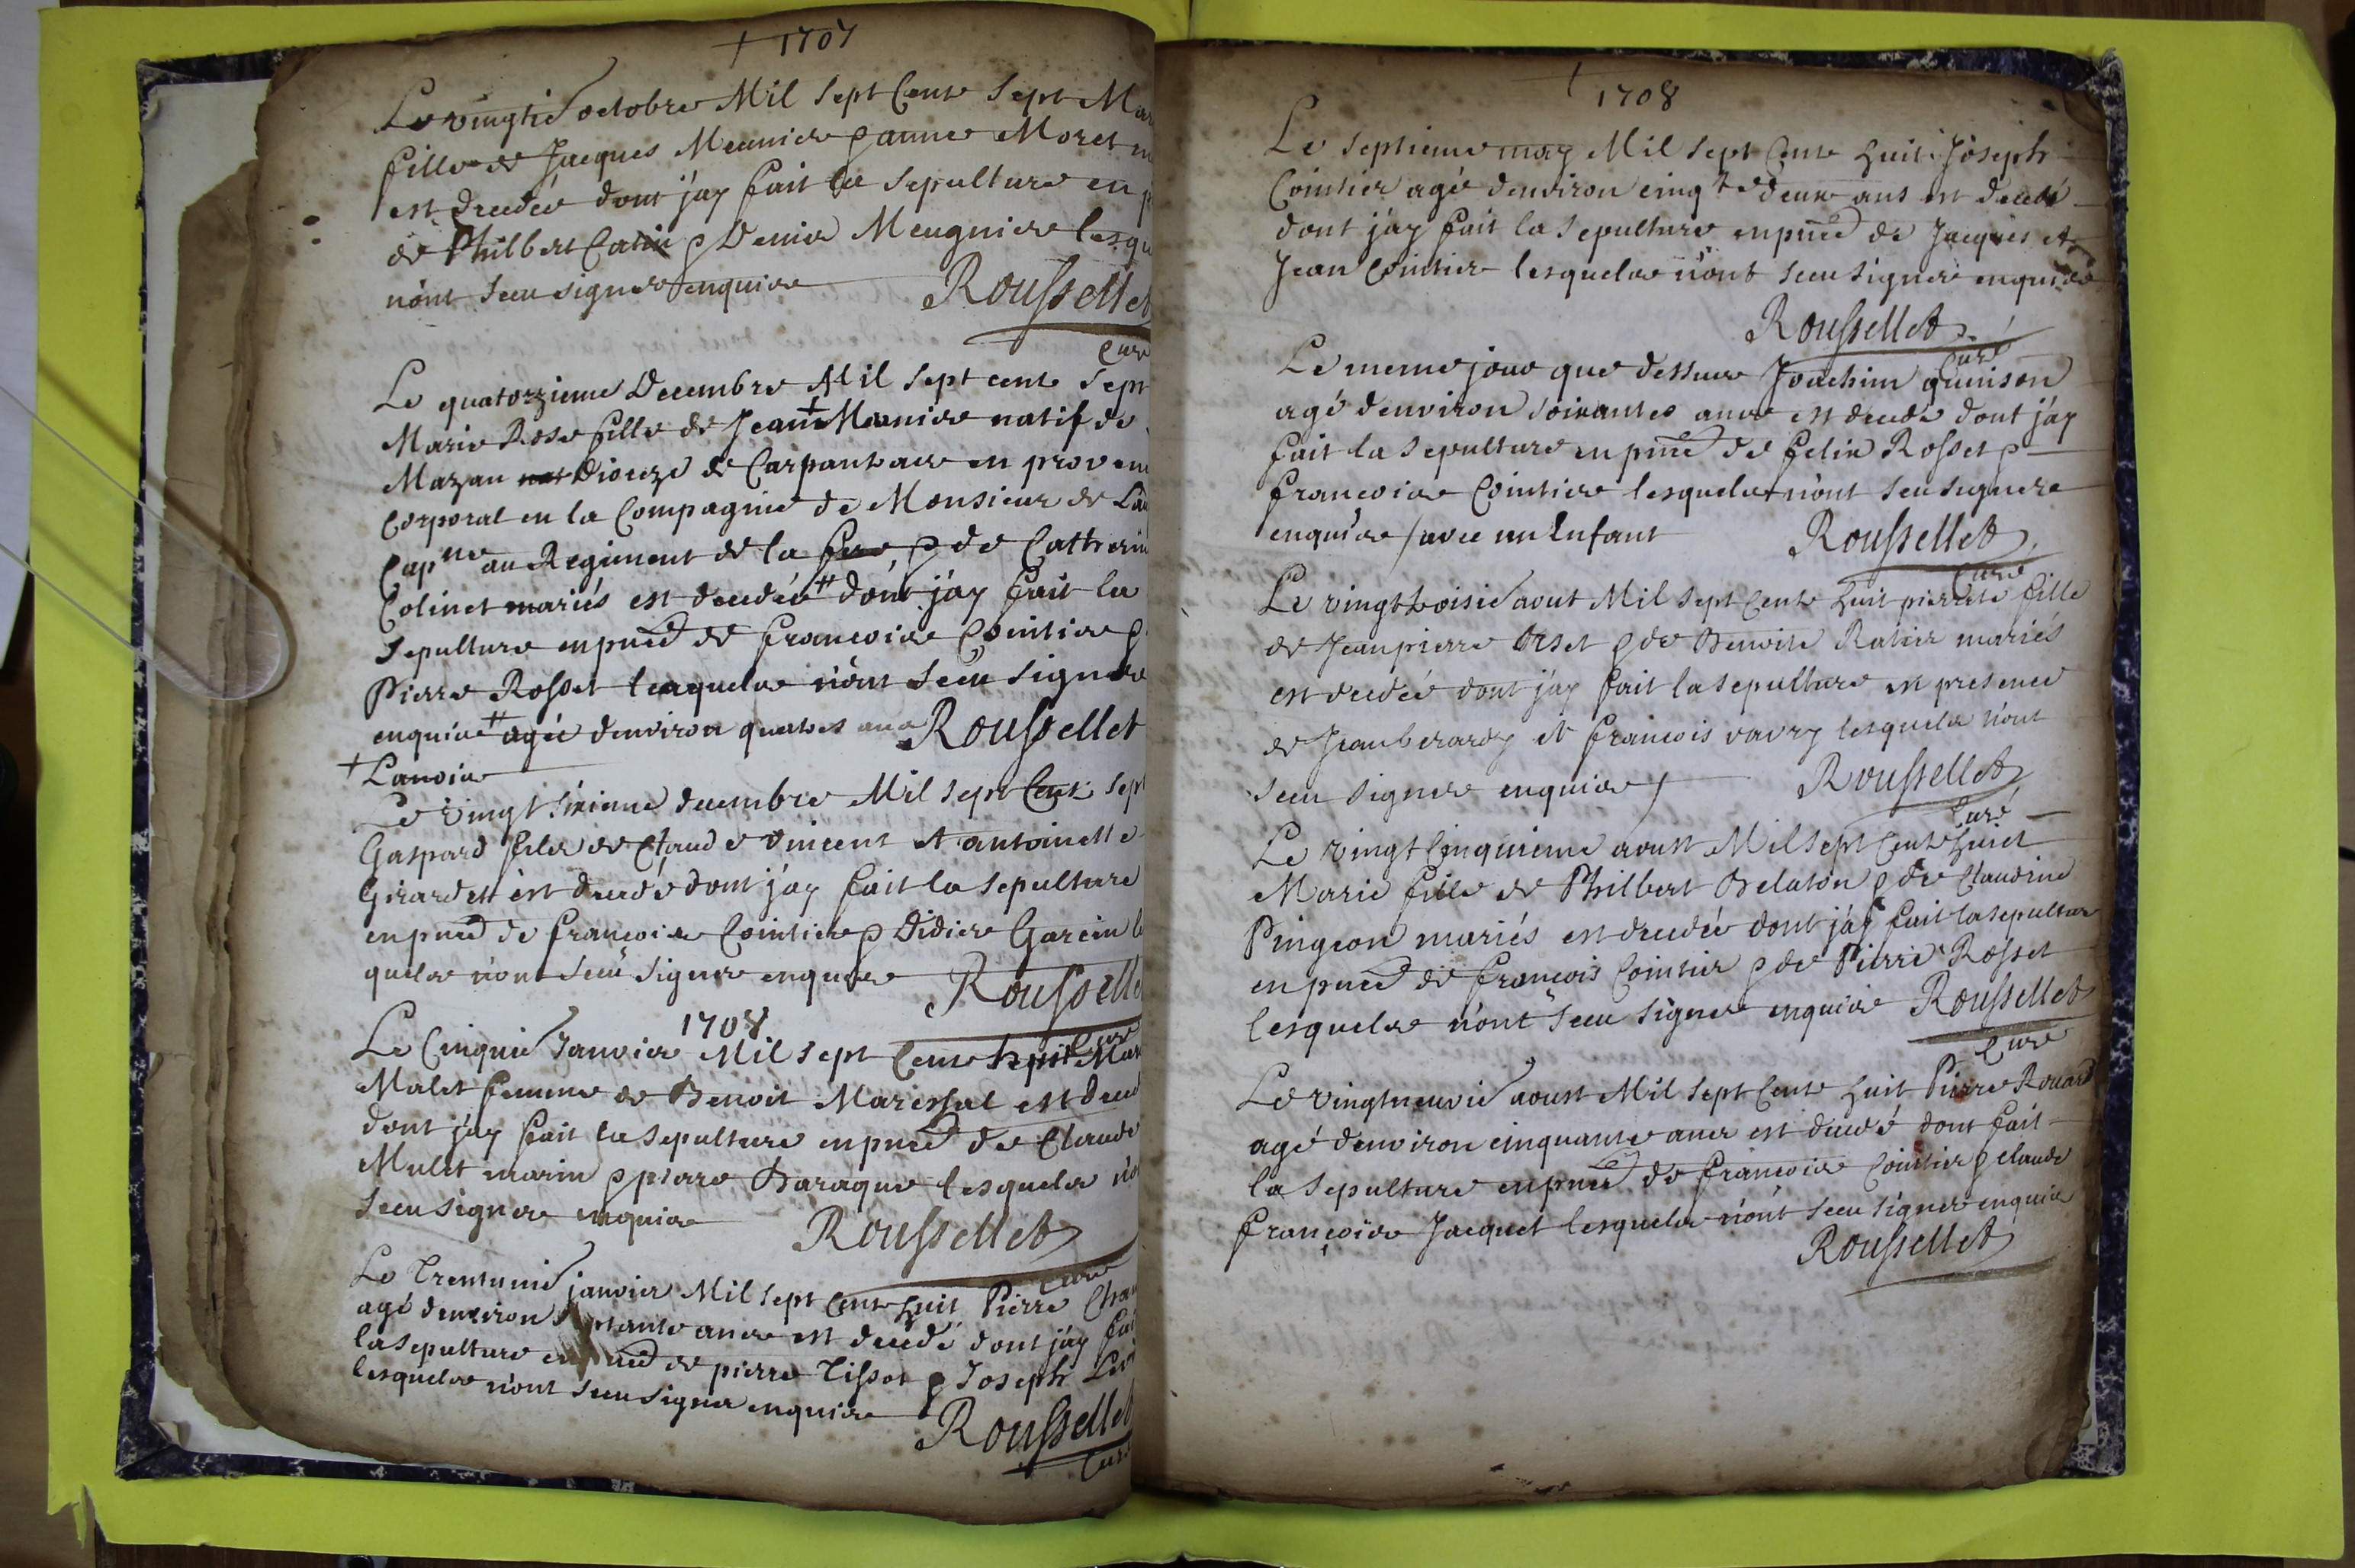 + 1707
Le vingtie octobre Mil Sept Cent Sept Mar
fille de Jacques Meunier & anne Moret m
est decedée dont j'ay fait la sepulture en p
de Philbert Catin & Denis Meugnier lesqu
n'ont sceu signer enquis
Roussellet
Curé
Le quatorzieme Decembre Mil Sept cent Sept
Marie Rose fille de Jean + Monier natif de
Mazan Dioceze de Carpantras en proven
Corporal en la Compagnie de Monsieur de La
Capne au Regiment de la fere & de Catherin
Colinet mariés est decedée # dont j'ay fait la
Sepulture en pnce de francois Cointier &
Pierre Rosset lesquels n'ont sceu signer
enquis # agée d'environ quatres ans Roussellet
+ Lanoix
Le vingt sixieme decembre Mil Sept Cent Sept
Gaspard fils de Claude vincent et antoinette
Girardet est decedé dont j'ay fait la sepulture
en pnce de francois Cointier & Didier Garcin les
quels n'ont sceu signer enquis Rousselle
Curé
1708
Le Cinquie Janvier Mil Sept Cent huit Mar
Malet femme de Benoit Mareschal est deced
dont j'ay fait la sepulture en pnce de Claude
Mulet marin & pierre Baraque lesquels n'o
sceu signer enquis Roussellet
Curé
Le Trentunie janvier Mil Sept Cent huit Pierre Chan
agé d'environ septante ans est decedé dont j'ay fai
la sepulture en pnce de pierre Tissot & Joseph
lesquels n'ont sceu signer enquis
Roussellet
Curé
+ 1708
Le Septieme may Mil Sept Cent huit Joseph
Cointier agé d'environ cinqte deux ans est decedé
dont j'ay fait la sepulture en pnce de Jacques et
Jean Cointier lesquels n'ont sceu signer enquis
Roussellet
Curé
Le meme jour que dessus Joachim qunison
agé d'environ soixantes ans est decedé dont j'ay
fait la sepulture en pnce de felix Rosset &
francois Cointier lesquels n'ont sceu signer
enquis / avec un Enfant Roussellet
Curé
Le vingt troisie aout Mil Sept Cent huit pierrete fille
de Jean pierre Orset & de Benoite Ratier mariés
est decedée dont j'ay fait la sepulture en presence
de Jean berardy et francois vavry lesquels n'ont
sceu signer enquis / Roussellet
Curé
Le vingt Cinquieme aoust Mil Sept Cent huict
Marie fille de Philbert Belaton & de Claudine
Pingeon mariés est decedée dont j'ay fait la sepulture
en pnce de françois Cointier & de Pierre Rosset
lesquels n'ont sceu signer enquis Roussellet
Curé
Le vingtneuvie aoust Mil Sept Cent huit Pierre Rouard
agé d'environ cinquante ans est decedé dont fait
la sepulture en pnce de francois Cointier & claude
françois Jacquet lesquels n'ont sceu signer enquis
Roussellet